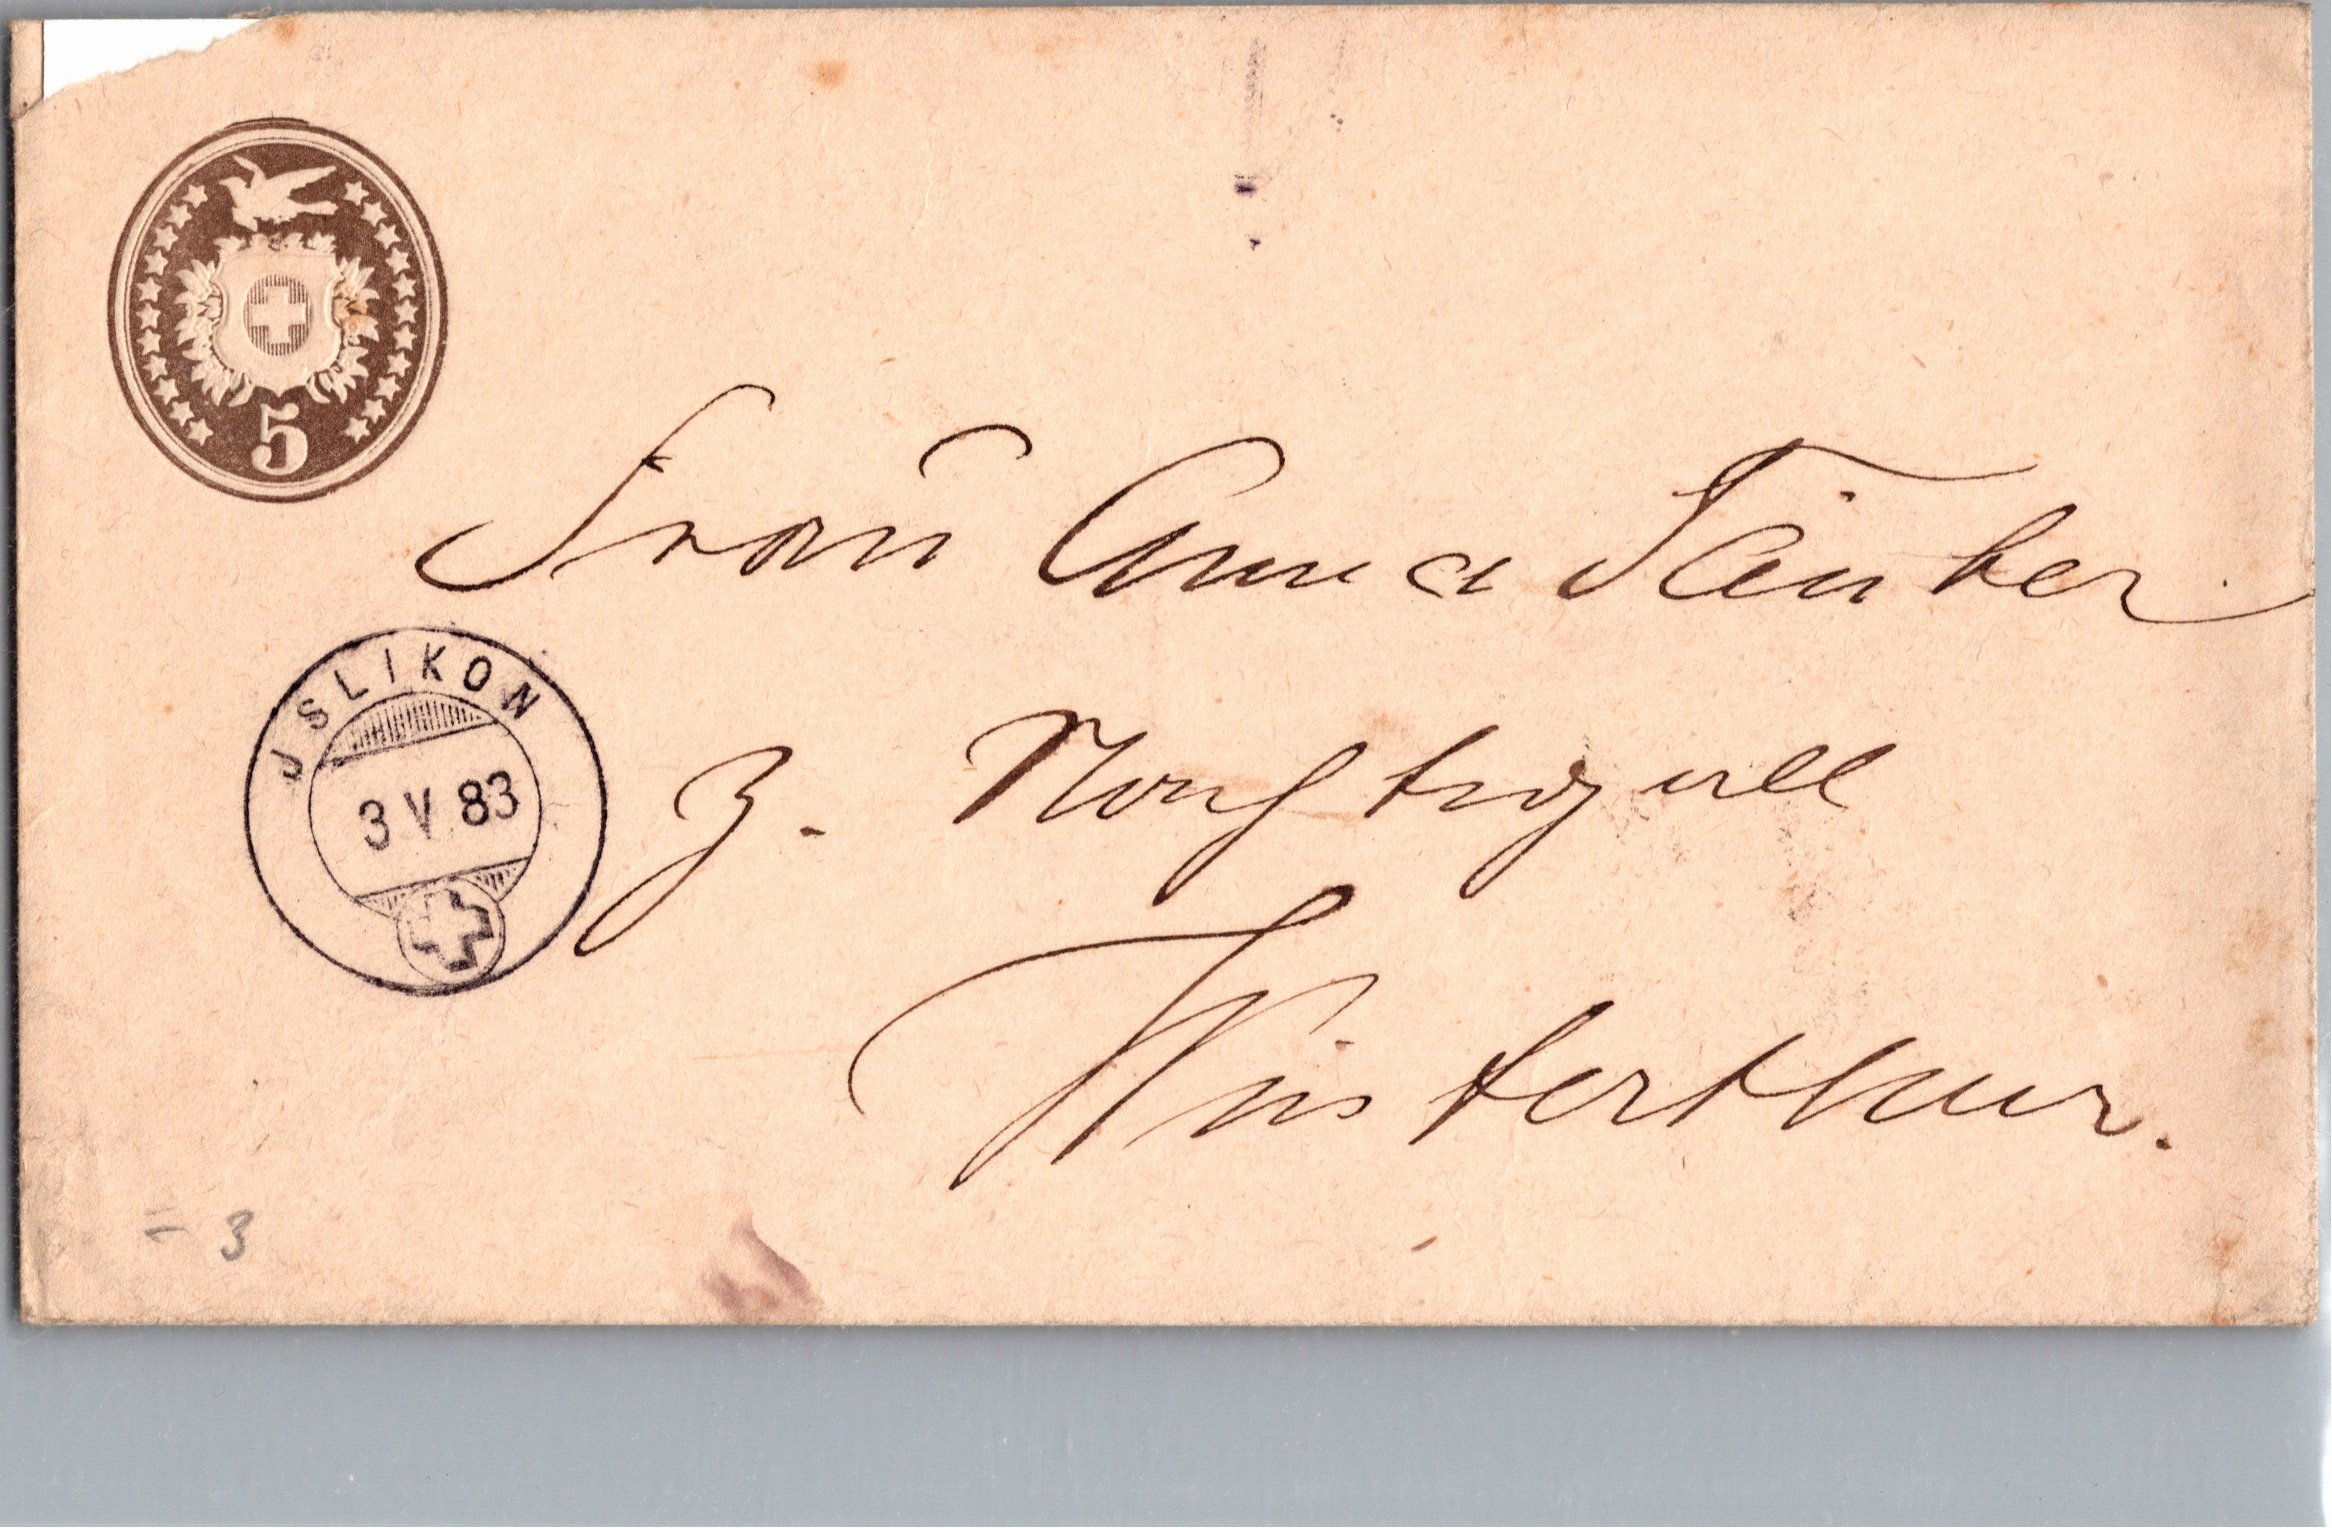 5
Frau Anna Täuber
JSLIKON
3 V. 83
z. Nachtigall
Winterthur.
- 3